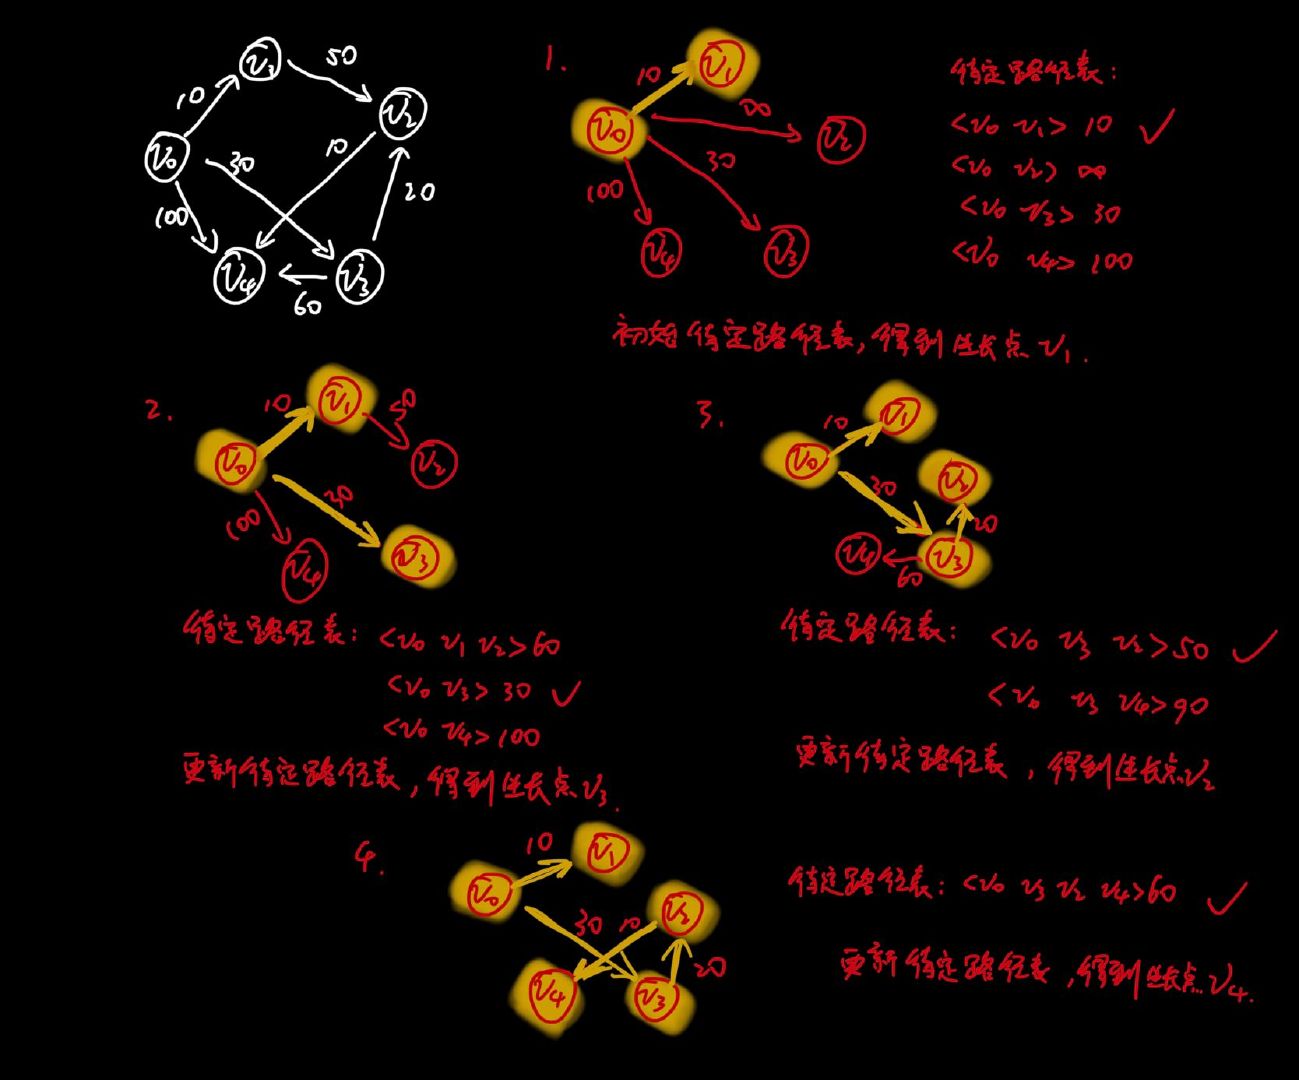 v₁
50
10
v₂
v₀
30
10
20
100
v₄
v₃
60
1.
v₁
10
v₀
∞
v₂
30
100
v₄
v₃
待定路径表:
<v₀ v₁> 10 ✓
<v₀ v₂> ∞
<v₀ v₃> 30
<v₀ v₄> 100
初始待定路径表,得到生长点v₁.
2.
10
v₁
50
v₀
v₂
30
100
v₄
v₃
待定路径表: <v₀ v₁ v₂>60
<v₀ v₃> 30 ✓
<v₀ v₄>100
更新待定路径表,得到生长点v₃.
3.
10
v₁
v₀
30
v₂
20
v₄
60
v₃
待定路径表: <v₀ v₃ v₂>50 ✓
<v₀ v₃ v₄>90
更新待定路径表,得到生长点v₂
4.
10
v₁
v₀
30
10
v₂
v₄
v₃
20
待定路径表:<v₀ v₃ v₂ v₄>60 ✓
更新待定路径表,得到生长点v₄.